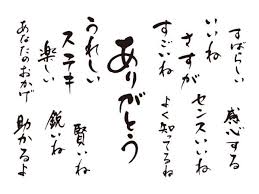 すばらしい
感心する
いいね
さすが
センスいいね
すごいね
よく知ってるね
ありがとう
うれしい
賢いね
ステキ
鋭いね
楽しい
助かるよ
あなたのおかげ